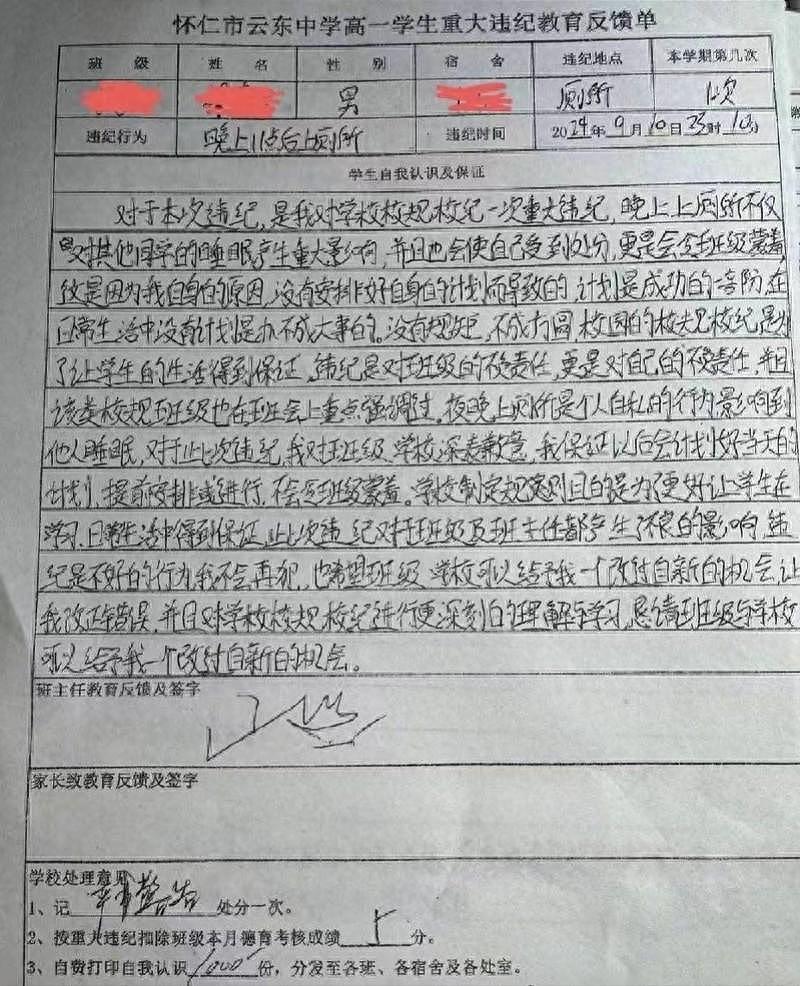 怀仁市云东中学高一学生重大违纪教育反馈单
班 级 姓 名 性 别 宿 舍 违纪地点 本学期第几次
男 厕所 1次
违纪行为 晚上11点后上厕所 违纪时间 2024年9月10日23时10分
学生自我认识及保证
对于本次违纪,是我对学校校规校纪一次重大违纪,晚上上厕所不仅
对其他同学的睡眠产生重大影响,并且也会使自己受到处分,更是会令班级蒙羞
这是因为我自身的原因,没有安排好自身的计划而导致的,计划是成功的一阶,在
日常生活中没有计划是办不成大事的。没有规矩,不成方圆,校园的校规校纪是为
了让学生的生活得到保证,违纪是对班级的不负责任,更是对自己的不负责任,并且
该类校规班级也在班会上重点强调过。夜晚上厕所是个人自私的行为影响到
他人睡眠,对于此次违纪,我对班级、学校深表歉意,我保证以后会计划好当天的
计划,提前安排或进行,不会令班级蒙羞。学校制定规则目的是为了更好让学生在
学习、日常生活中得到保证,此次违纪对班级及班主任都产生了不良的影响,违
纪是不好的行为,我不会再犯,也希望班级、学校可以给予我一个改过自新的机会,让
我改正错误,并且对学校校规、校纪进行更深刻的理解与学习,恳请班级与学校
可以给予我一个改过自新的机会。
班主任教育反馈及签字
家长致教育反馈及签字
学校处理意见
1、记 警告 处分一次。
2、按重大违纪扣除班级本月德育考核成绩 5 分。
3、自费打印自我认识 1000 份,分发至各班、各宿舍及各处室。